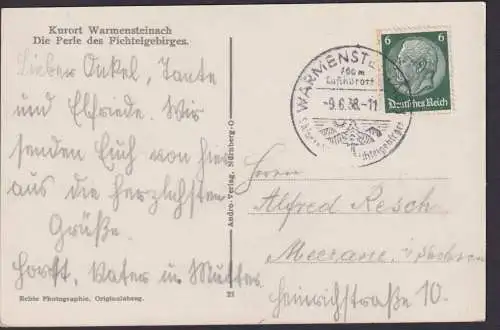 Kurort Warmensteinach
Die Perle des Fichtelgebirges.
Lieber Onkel, Tante
und Elfriede. Wir
senden Euch von hier
aus die herzlichsten
Grüße.
Horst, Vater u. Mutter
Echte Photographie, Originalabzug.
21
Andro-Verlag, Nürnberg-O
WARMENSTE
700m
Luftkurort
-9.6.38.-11
Fichtelgebirge
6 6
Deutsches Reich
Herrn
Alfred Resch
Meerane i/Sachsen
Heinrichstraße 10.